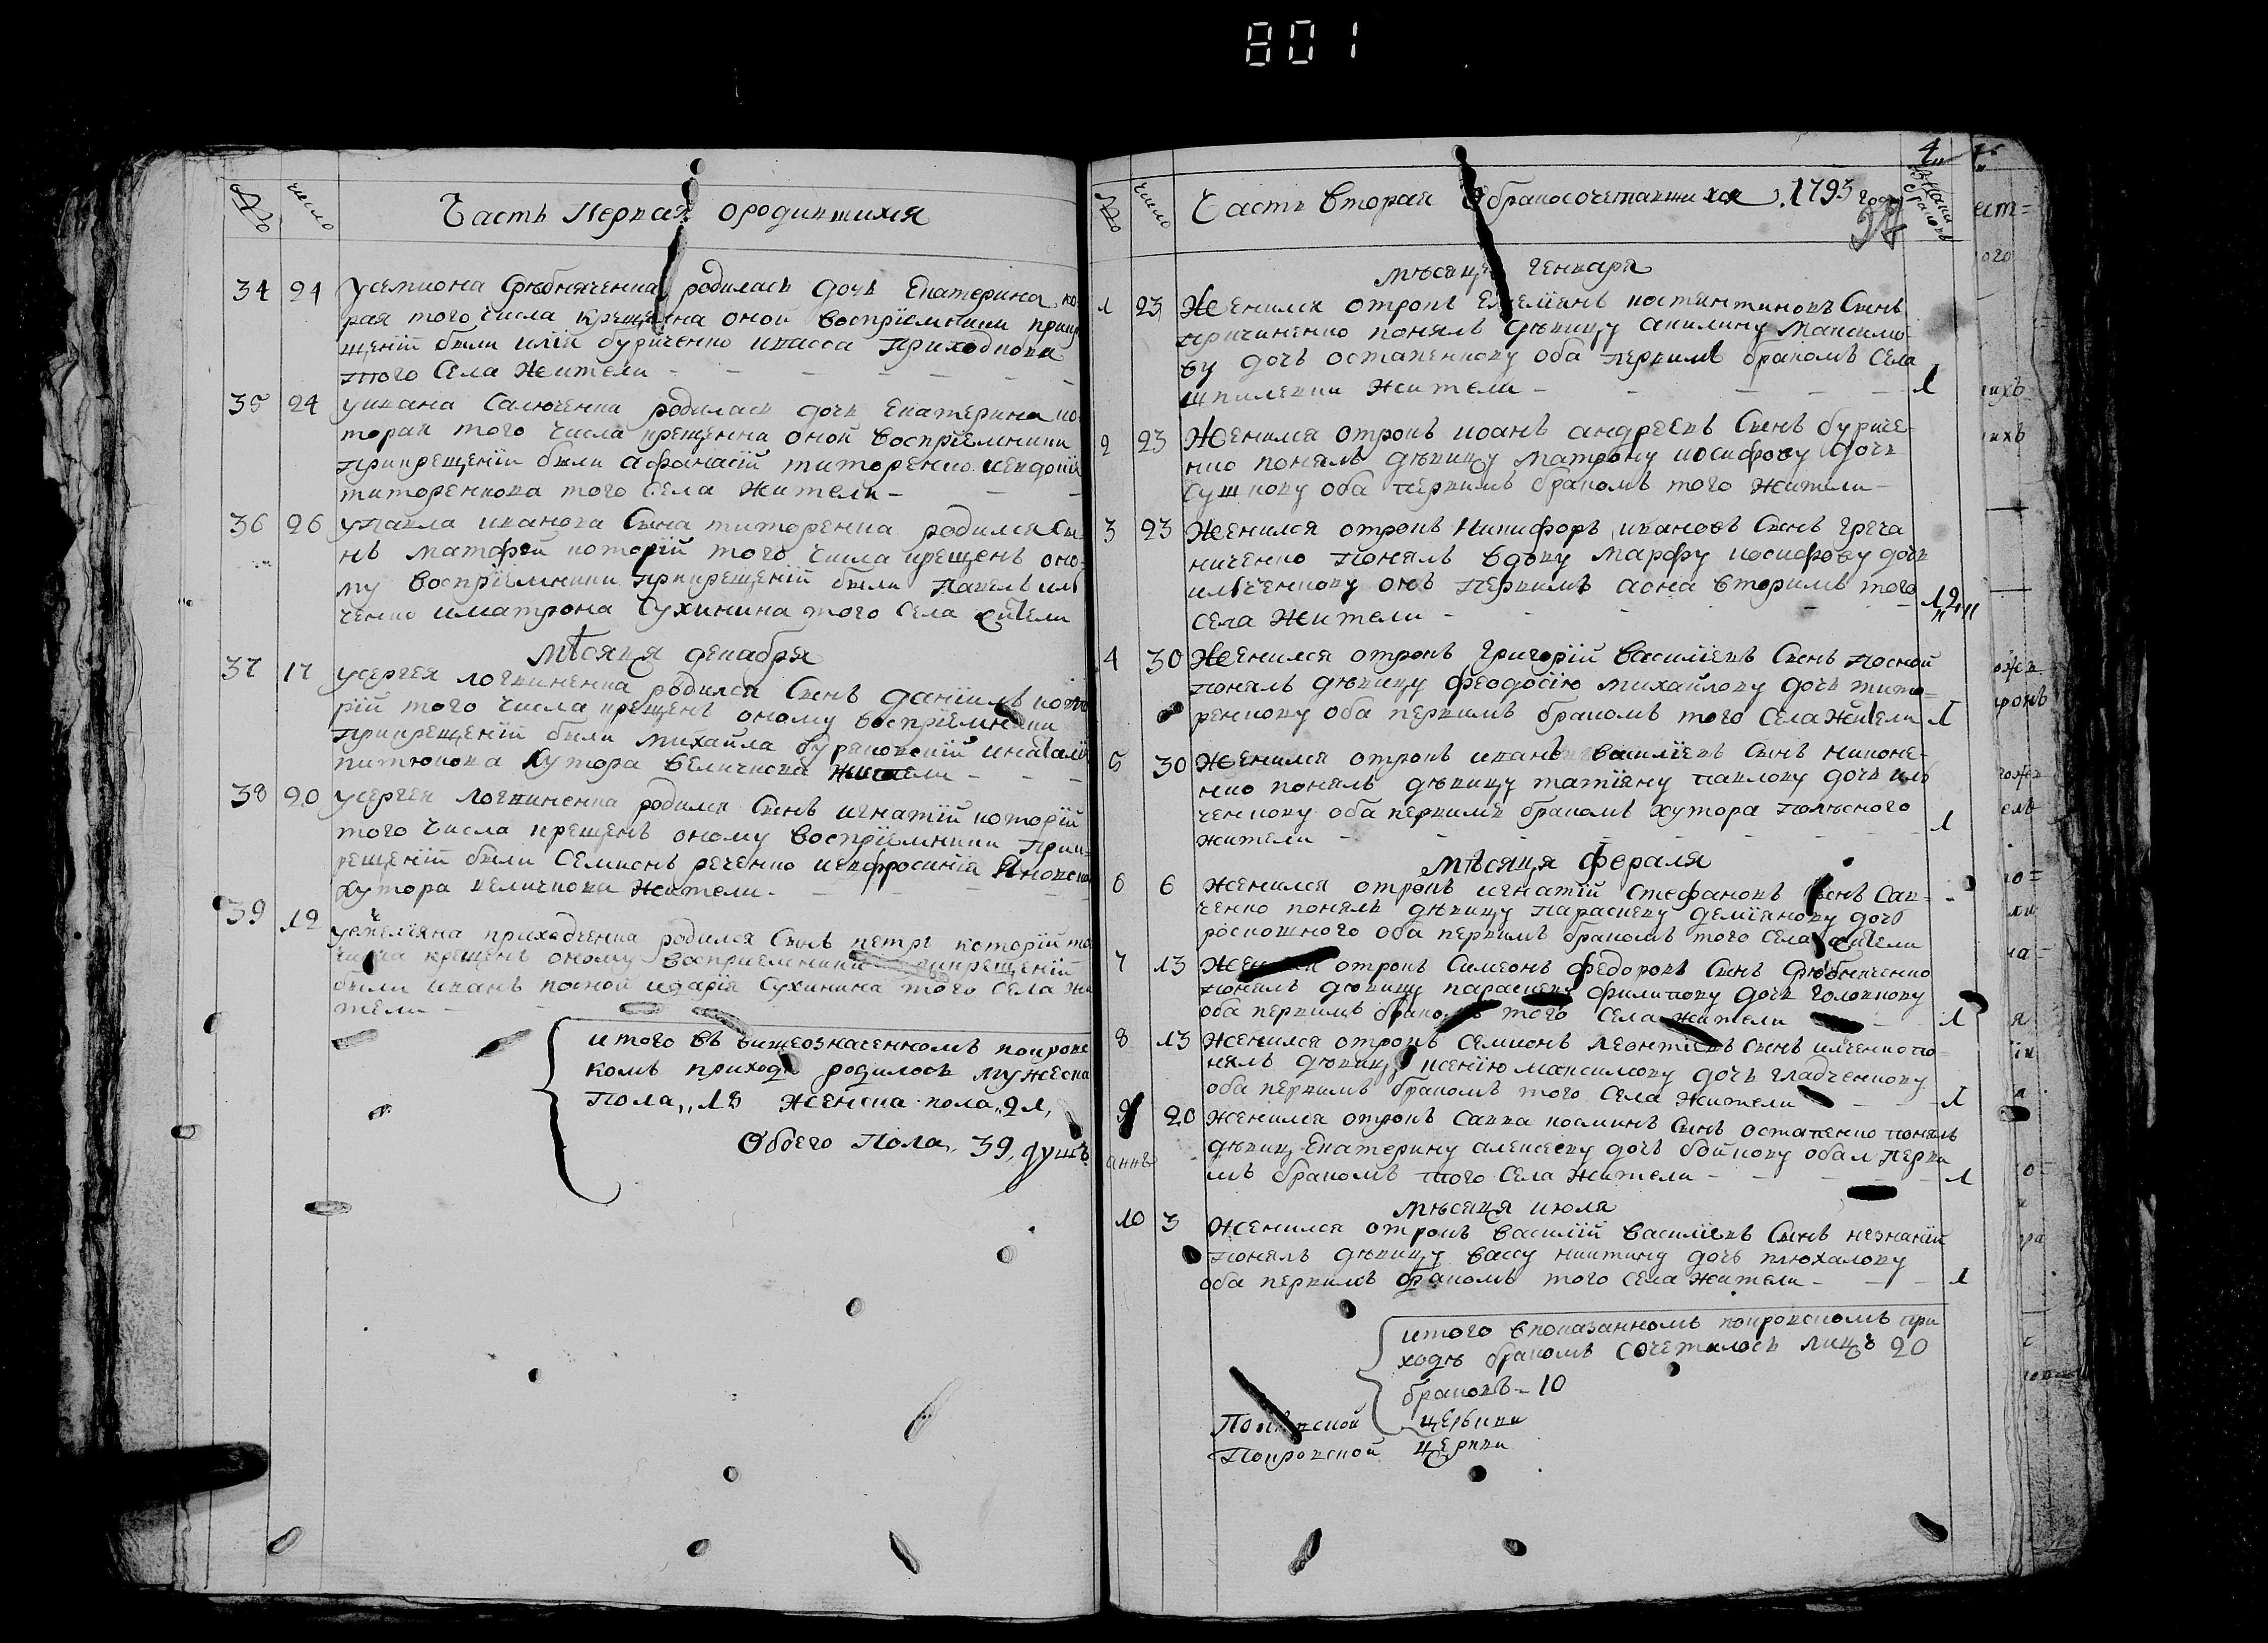 801
№ число Часть Первая ородившихся
34 24 усемиона Срѣбняченка родилась дочь Екатерина ко
рая того числа крещенна оной воспріемники прикр
щеній были илія буриченко ивасса Приходкова
того Села Жители
35 24 уивана Салюченка родилась дочь Екатерина ко
торая того числа крещенна оной воспріемники
прикрещеніи были афанасій титоренко иевдокія
титоренкова того Села Жители
36 26 упавла иванова Сына титоренка родился Сы
нъ матфей которій того числа крещенъ оно
му воспріемники прикрещеній были Павелъ иль
ченко иматрона Сухинина того Села жители
Мѣсяця декабря
37 17 усергея логвиненка родился Сынъ даніилъ кото
рій того числа крещенъ оному воспріемники
прикрещеній были михайла буряковскій инаталія
питюкова Хутора величкова жители
38 20 усергея логвиненка родился Сынъ игнатій которій
того числа крещенъ оному воспріемники Прик
рещеній были Семионъ реченко иевфросинія Яновска
Хутора величкова жители
39 12 уемеліяна приходченка родился Сынъ петръ которій то
числа крещенъ оному воспріемники прикрещеній
были иванъ косной идарія Сухинина того Села жи
тели
итого въ вишеозначенномъ покровс
комъ приходѣ родилось мужеска
Пола,, 18 женска пола,, 21,
Обоего Пола,, 39, душъ
4
№ число Часть Вторая Обракосочетавшихся 1795 году
Мѣсяця генваря
1 23 Женился отрокъ Емеліянъ костянтиновъ Сынъ
кричиненко понялъ дѣвицу акилину Максимо
ву дочь остапенкову оба первимъ бракомъ Села
шпилевки жители 1
2 23 Женился отрокъ иоанъ андреевъ Сынъ буриче
нко понялъ дѣвицу матрону иосифову дочь
Сушкову оба первимъ бракомъ того жители
3 23 Женился отрокъ Никифоръ ивановъ Сынъ греча
ниченко понялъ вдову марфу иосифову дочь
ильченкову онъ первимъ аона вторимъ того
села жители 12
4 30 Женился отрокъ Григорій Василіевъ Сынъ косной
понялъ дѣвицу феодосію михайлову дочь тито
ренкову оба первимъ бракомъ того Села жители 1
5 30 Женился отрокъ иванъ василіевъ Сынъ никоне
нко понялъ дѣвицу татіяну павлову дочь иль
ченкову оба первимъ бракомъ Хутора Полѣсного
жители 1
Мѣсяця Фераля
6 6 женился отрокъ игнатій Стефановъ Сынъ Сав
ченко понялъ дѣвицу Параскеву деміянову дочь
роскошного оба первимъ бракомъ того Села жители
7 13 Женился отрокъ Симеонъ федоровъ Сынъ Срѣбняченко
понялъ дѣвицу параскеву филипову дочь головкову
оба первимъ бракомъ того Села жители 1
8 13 Женился отрокъ Семионъ леонтіевъ Сынъ илченко по
нялъ дѣвицу ксенію максимову дочь гладченкову
оба первимъ бракомъ того Села жители 1
9 20 женился отрокъ Савва косминъ Сынъ остапенко понялъ
дѣвиц Екатерину алексеву дочь бойкову оба л перви
мъ бракомъ того Села жители 1
Мѣсяця июля
10 3 Женился отрокъ василій василіевъ Сынъ незнаній
понялъ дѣвицу вассу никитину дочь плюхалову
оба первимъ бракомъ того Села жители 1
итого впоказанномъ покровскомъ при
ходѣ бракомъ сочеталось лицъ 20
браковъ 10
церкви
Покровской церкви